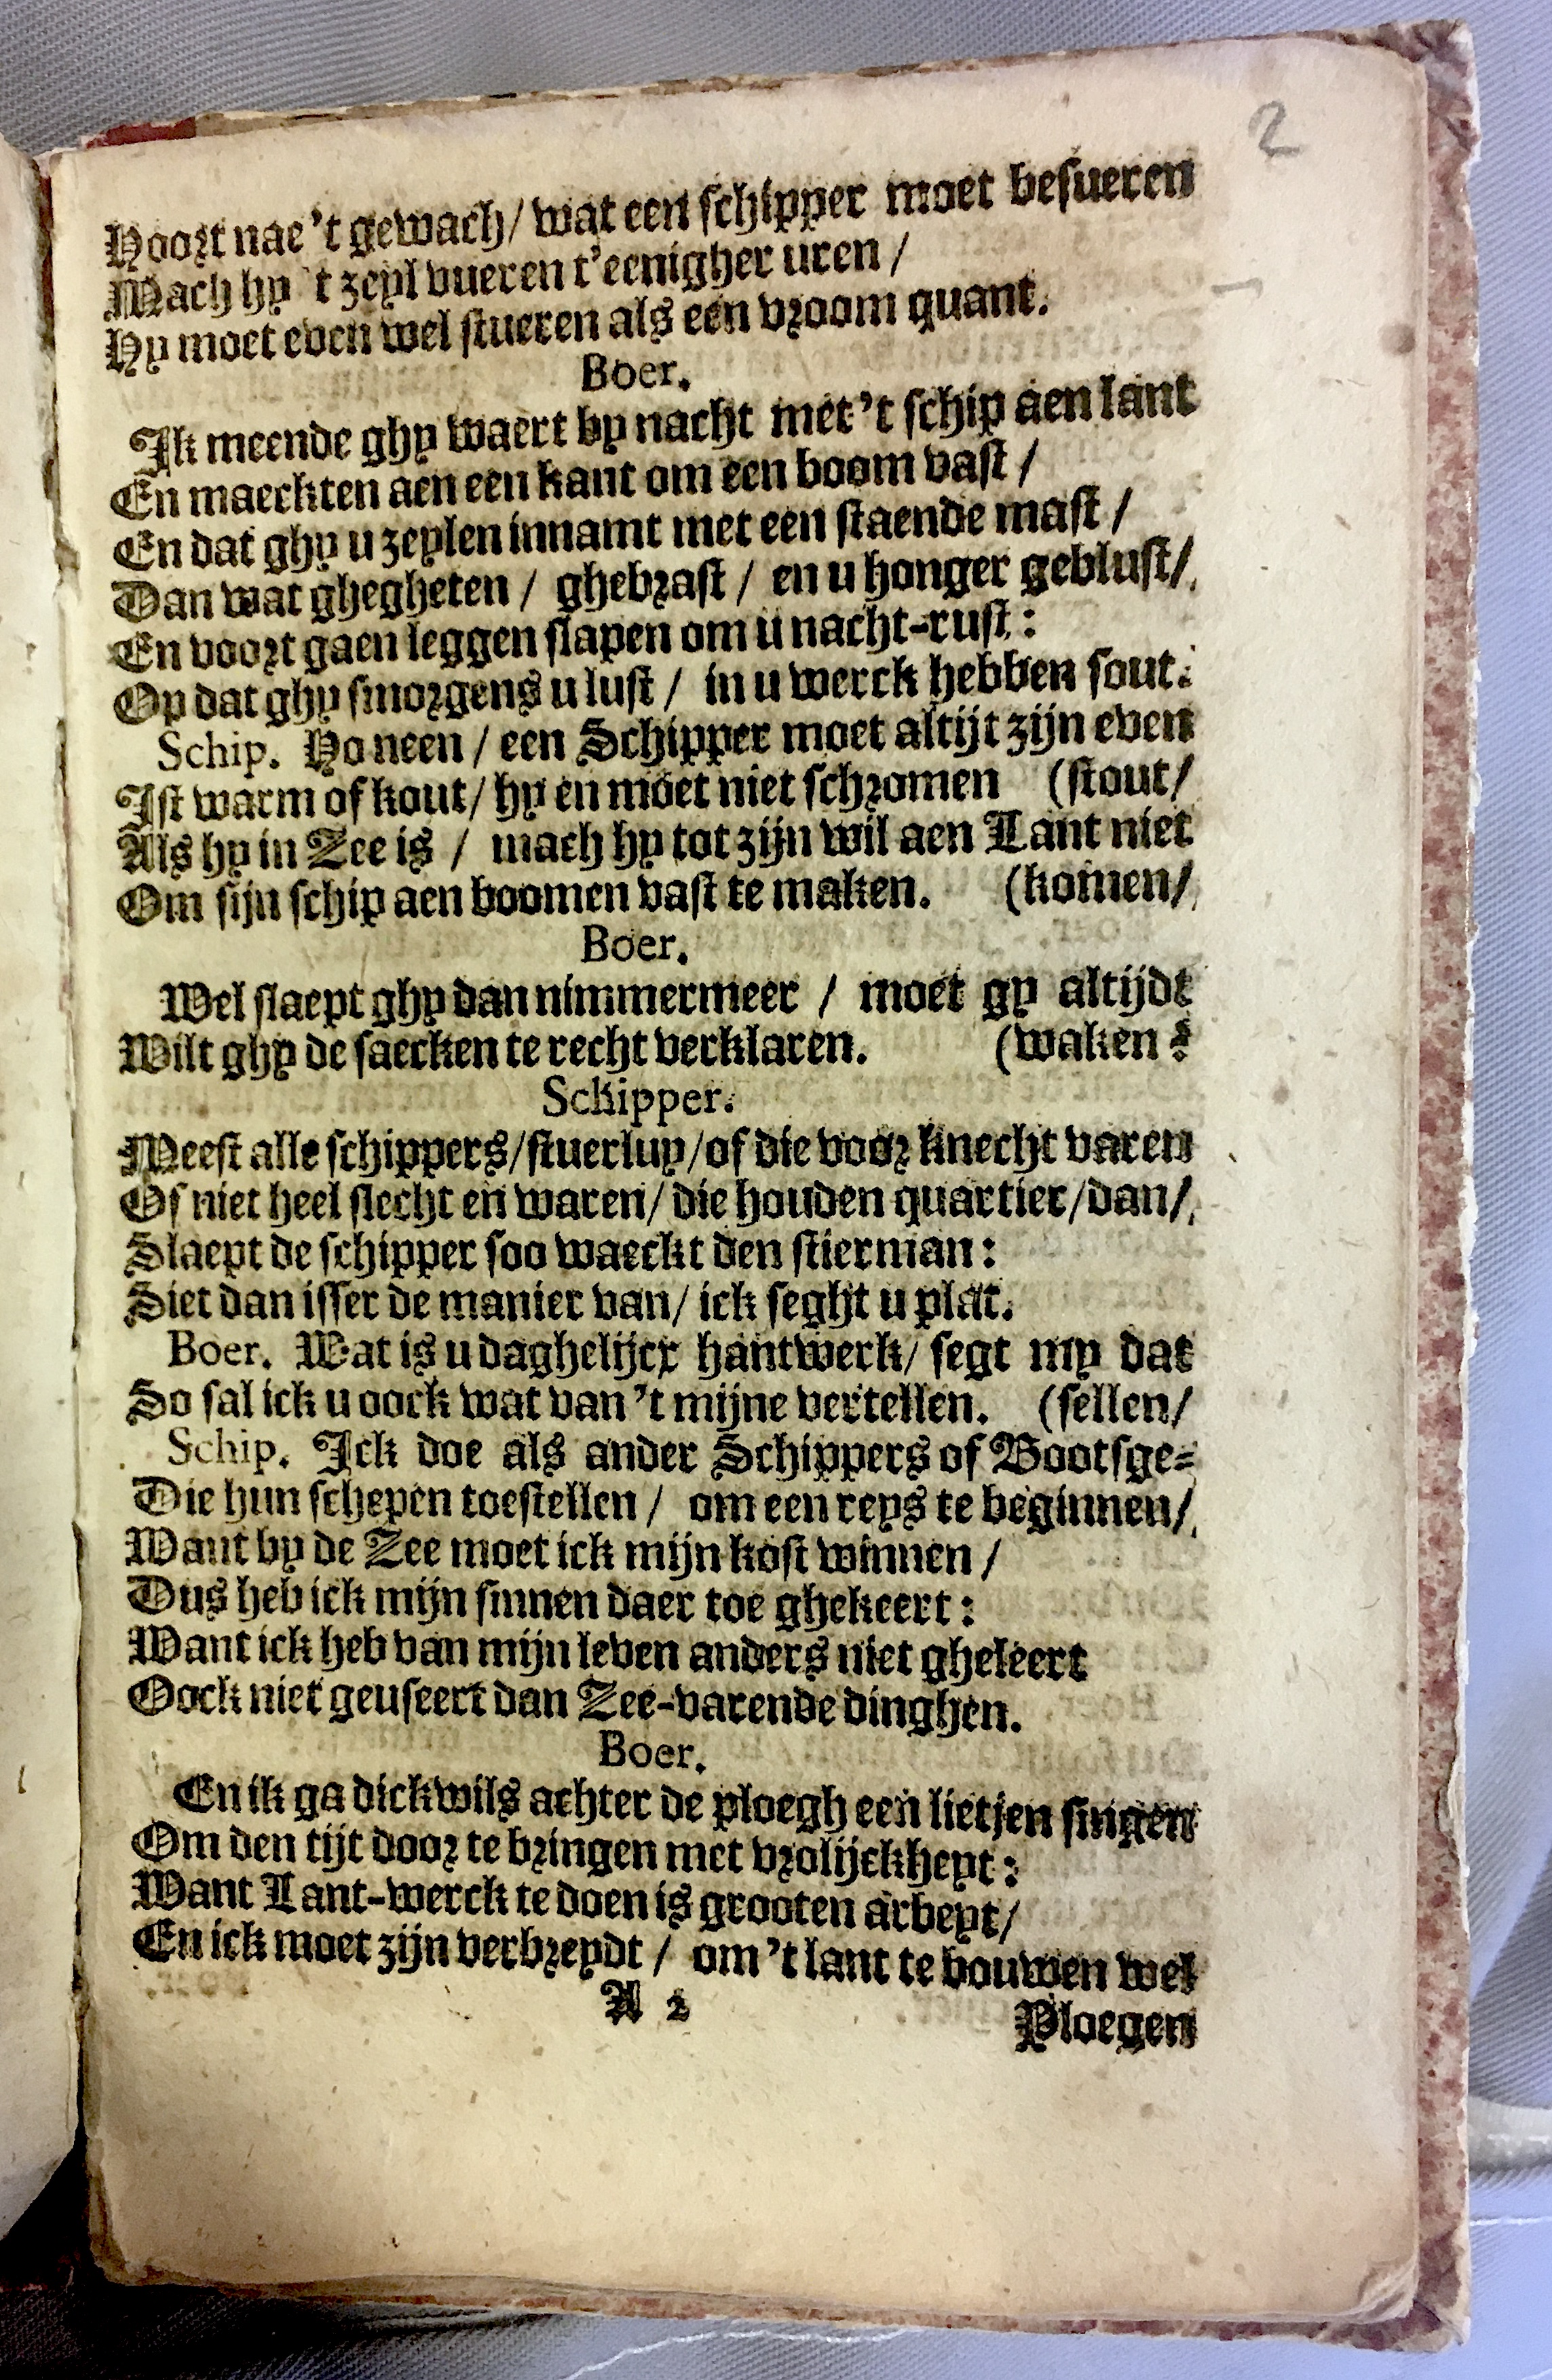 2
Hoort nae 't gewach/ wat een schipper moet besueren
Mach hy 't zeyl vueren t'eenigher uren /
Hy moet even wel stueren als een vroom quant.
Boer.
Ik meende ghy waert by nacht met 't schip aen lant
En maeckten aen een kant om een boom vast /
En dat ghy u zeylen innamt met een staende mast /
Dan wat ghegheten / ghebrast / en u honger geblust/
En voort gaen leggen slapen om u nacht-rust :
Op dat ghy smorgens u lust / in u werck hebben sout.
Schip. Ho neen / een Schipper moet altijt zijn even
Ist warm of kout/ hy en moet niet schromen (stout/
Als hy in Zee is / mach hy tot zijn wil aen Lant niet
Om sijn schip aen boomen vast te maken. (komen/
Boer.
Wel slaept ghy dan nimmermeer / moet gy altijdt
Wilt ghy de saecken te recht verklaren. (waken ?
Schipper.
Meest alle schippers/stuerluy/of die voor knecht varen
Of niet heel slecht en waren/ die houden quartier/dan/
Slaept de schipper soo waeckt den stierman :
Siet dan isser de manier van/ ick seght u plat.
Boer. Wat is u daghelijcx hantwerk/ segt my dat
So sal ick u oock wat van 't mijne vertellen. (sellen/
Schip. Ick doe als ander Schippers of Bootsge-
Die hun schepen toestellen / om een reys te beginnen/
Want by de Zee moet ick mijn kost winnen /
Dus heb ick mijn sinnen daer toe ghekeert :
Want ick heb van mijn leven anders niet gheleert
Oock niet geuseert dan Zee-varende dinghen.
Boer.
En ik ga dickwils achter de ploegh een lietjen singen
Om den tijt door te bringen met vrolijckheyt :
Want Lant-werck te doen is grooten arbeyt/
En ick moet zijn verbreydt / om 't lant te bouwen wel
A 2
Ploegen